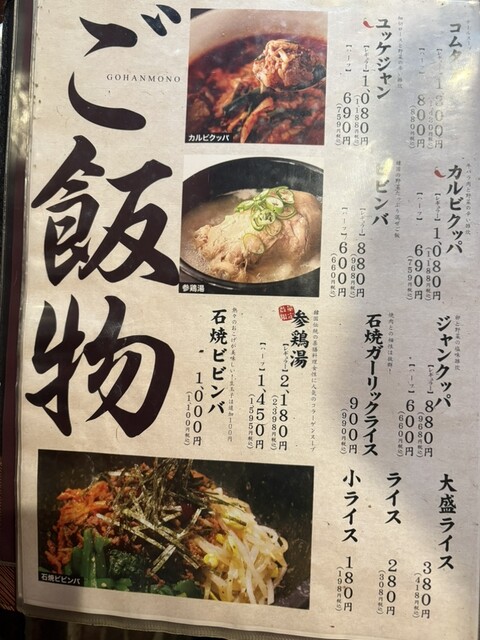 ご飯物
GOHANMONO
カルビクッパ
参鶏湯
石焼ビビンバ
コムタ
【レギュラー】1,300円
800円
(880円税込)
ユッケジャン
【レギュラー】1,080円
(1188円税込)
【ハーフ】690円
(759円税込)
カルビクッパ
【レギュラー】1,080円
(1,188円税込)
【ハーフ】69
(759円税込)
ビビンバ
880円
(968円税込)
【ハーフ】600円
(660円税込)
ジャンクッパ
【レギュラー】880円
(968円税込)
【ハーフ】600円
(660円税込)
石焼ガーリックライス
900円
(990円税込)
参鶏湯
韓国伝統の薬膳料理女性に人気のコラーゲンスープ
【レギュラー】2,180円
(2398円税込)
【ハーフ】1,450円
(1595円税込)
石焼ビビンバ
熱々のおこげが美味しい!生玉子は追加100円
1,000円
(1,100円税込)
大盛ライス
380円
(418円税込)
ライス
280円
(308円税込)
小ライス
180円
(198円税込)